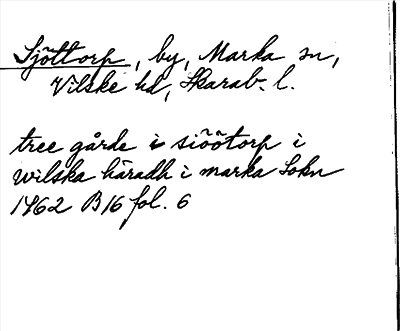 Sjöttorp, by, Marka sn,
Vilske hd, Skarab. l.
tree gårde i siöötorp i
wilska häradh i marka Sokn
1462 B16 fol. 6